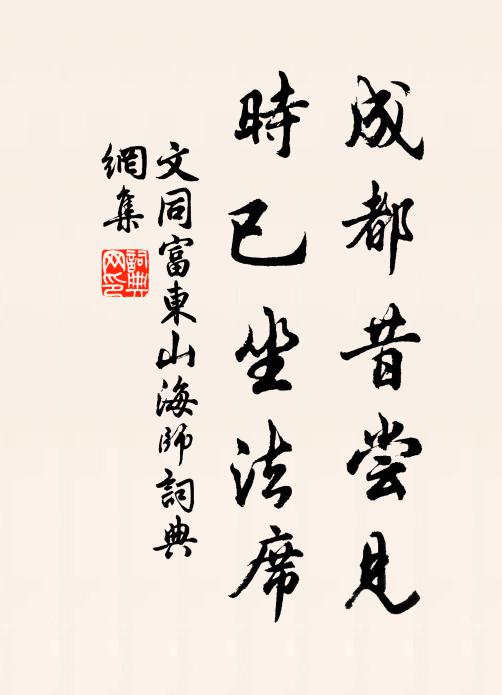 成都昔尝見
時已坐法席
文同富東山海師詞典
網集
詞典网印